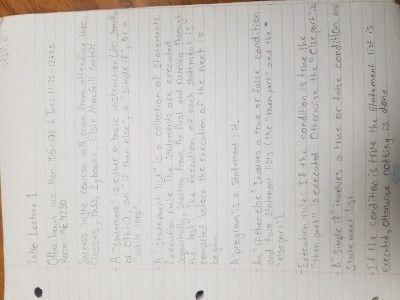 Title: Lecture 1
Office hours are: Mon
Room: ME4230
Success in this course will come from attending labs,
classes, Pass, Zybooks,
A "statement" is either a basic instruction
an if then else, a simple if, or a
"while loop"
A "statement list" is a collection of statements.
Execution rule: The statements are executed
sequentially, starting from the first and moving through
the last. The execution of each statement is
completed before the execution of the next is
begun.
A program is a statement list.
An "if then else" Involves a true or false condition
and two statement lists (the "then part" and the
"else part").
-Execution rule: If the condition is true the
"then part" is executed. Otherwise the "else part" is
A simple "if" involves a true or false condition and
Statement list.
If the condition is true the statement list is
executed, otherwise nothing is done.